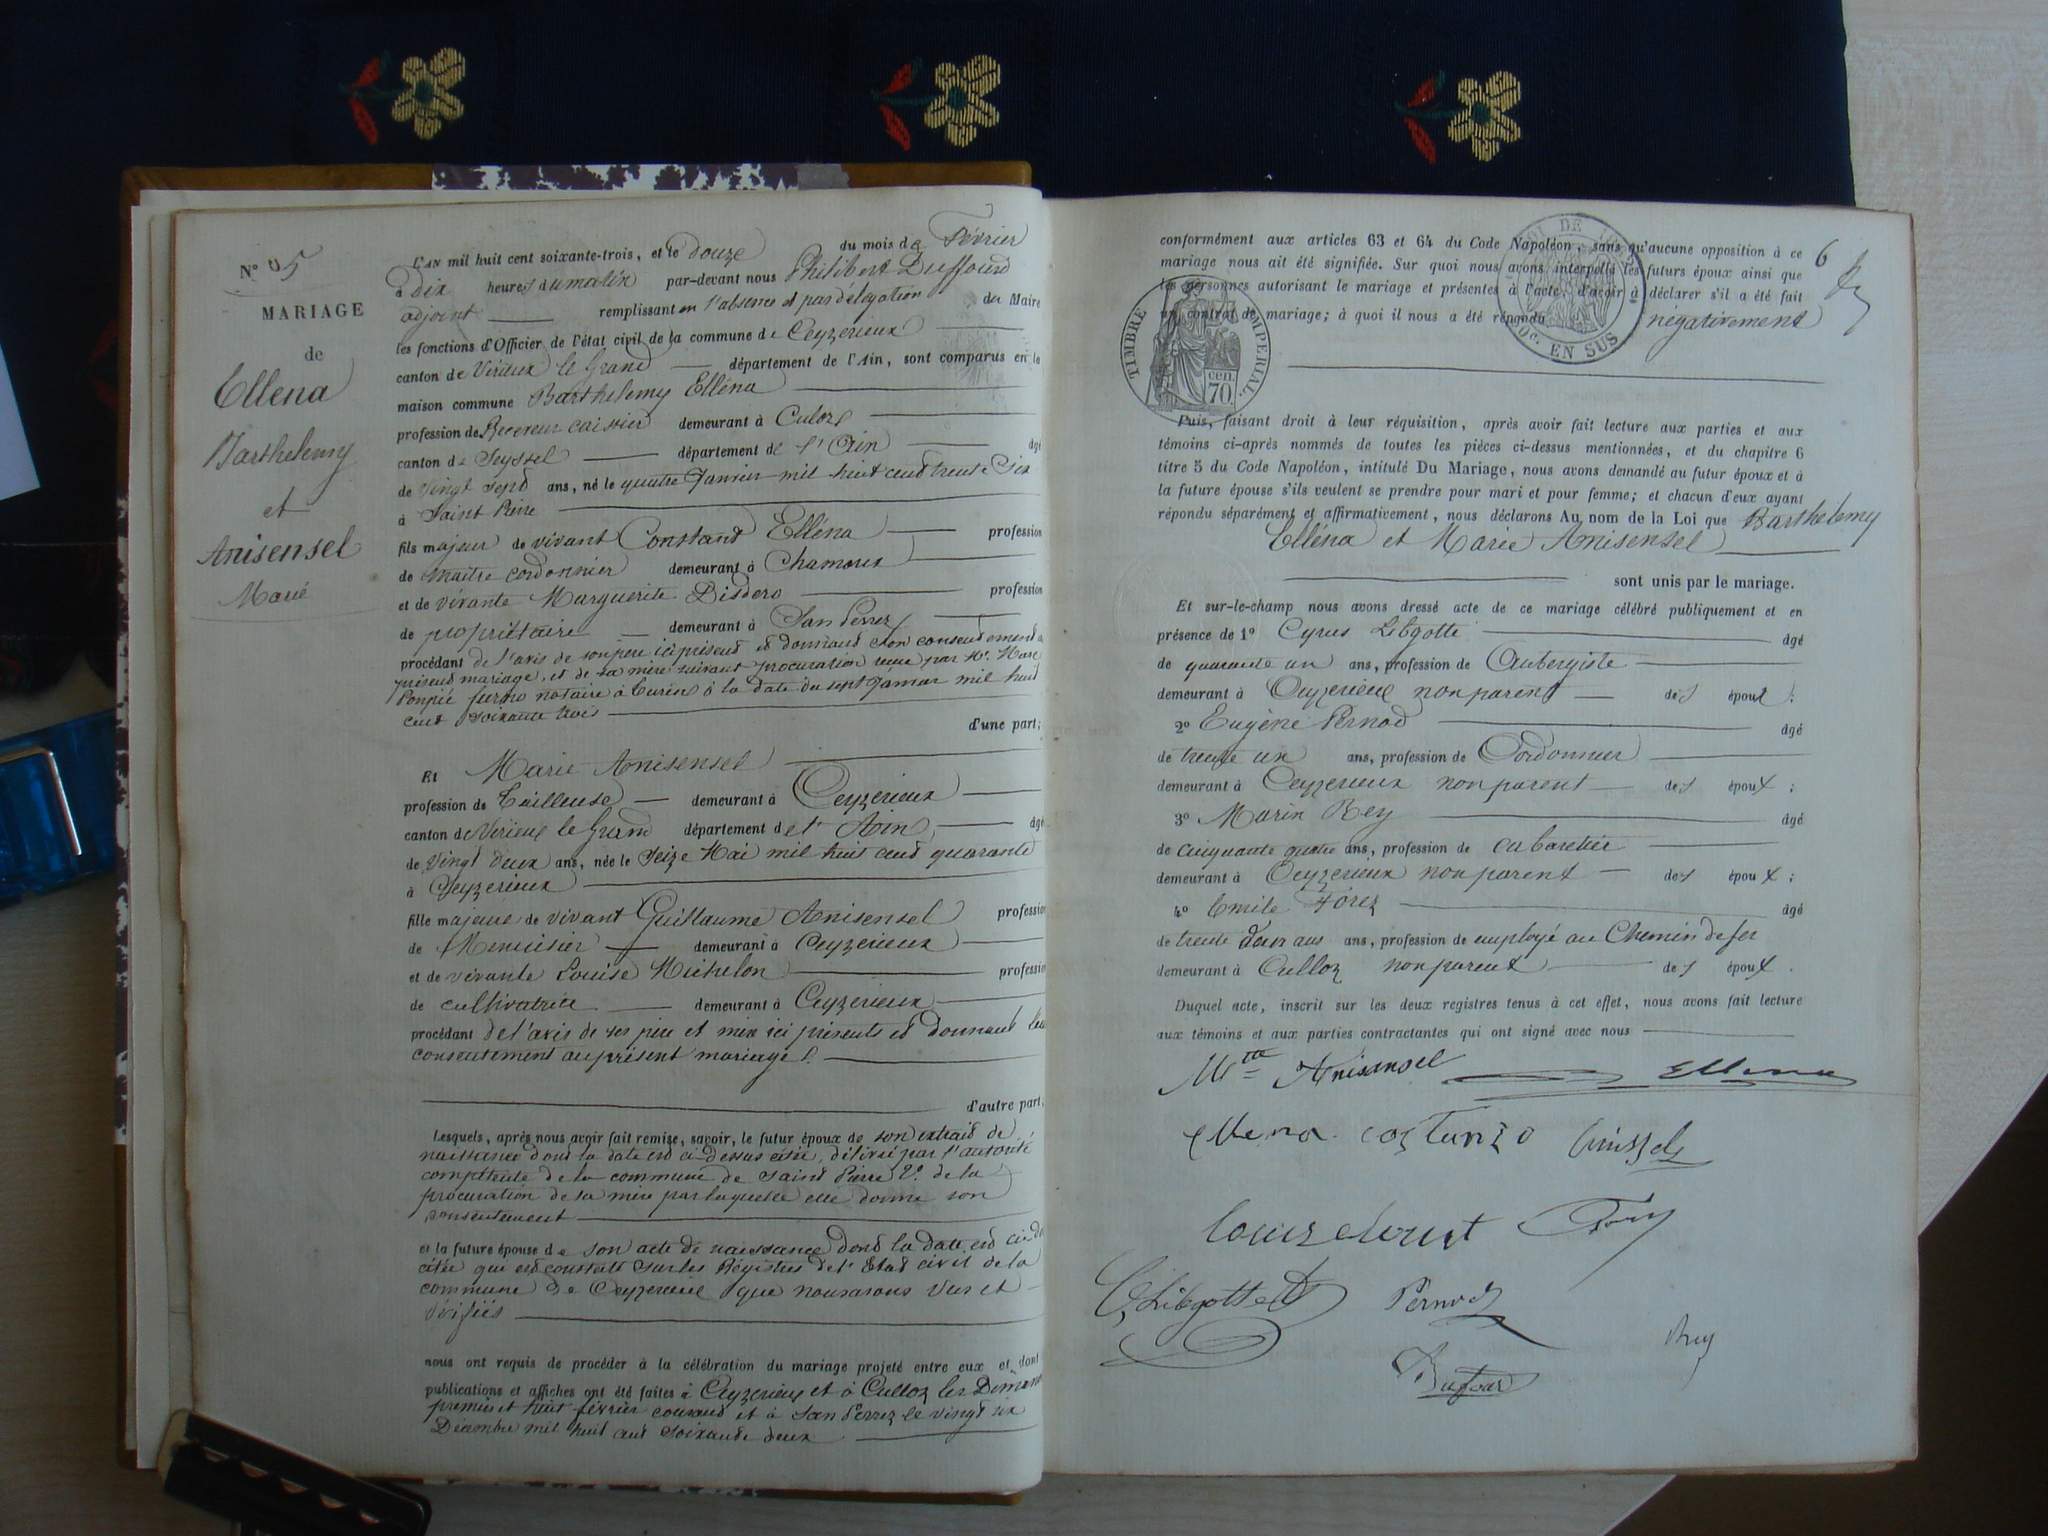 N° 5
MARIAGE
de
Ellena
Barthelemy
et
Anisensel
Marie
L'AN mil huit cent soixante-trois, et le douze du mois de Février
à dix heures du matin par-devant nous Philibert Duffourd
adjoint remplissant en l'absence et par délégation du Maire
les fonctions d'Officier de l'état civil de la commune de Ceyzerieux
canton de Virieux le Grand département de l'Ain, sont comparus en la
maison commune Barthelemy Elléna
profession de Receveur caissier demeurant à Culoz
canton de Seyssel département de l'Ain âgé
de vingt sept ans, né le quatre Janvier mil huit cent trente six
à Saint Pierre
fils majeur de vivant Constant Elléna profession
de maitre cordonnier demeurant à Chamoux
et de vivante Marguerite Disdero profession
de propriétaire demeurant à San Perrez
procédant de l'avis de son père ici présent et donnant son consentement au
présent mariage, et de sa mère suivant procuration reçue par Me. Marc
notaire à à la date du sept Janvier mil huit
cent soixante trois
d'une part;
Et Marie Anisensel
profession de Tailleuse demeurant à Ceyzerieux
canton de Virieux le Grand département de l'Ain, âgé
de vingt deux ans, née le seize Mai mil huit cent quarante
à Ceyzerieux
fille majeure de vivant Guillaume Anisensel profession
de Menuisier demeurant à Ceyzerieux
et de vivante Louise Michelon profession
de cultivatrice demeurant à Ceyzerieux
procédant de l'avis de ses père et mère ici présents et donnant leur
consentement au présent mariage
d'autre part.
Lesquels, après nous avoir fait remise, savoir, le futur époux de son extrait de
naissance dont la date est ci-dessus citée, délivré par l'autorité
compétente de la commune de Saint Pierre 2° de la
procuration de sa mère par laquelle elle donne son
consentement
et la future épouse de son acte de naissance dont la date est ci-des
citée qui est constaté sur les Régistres de l'Etat civil de la
commune de Ceyzerieux que nous avons vus et
vérifiés
nous ont requis de procéder à la célébration du mariage projeté entre eux et dont
publications et affiches ont été faites à Ceyzerieux et à Culloz les Dimanches
premier et huit février courant et à San Perrez le vingt six
Décembre mil huit cent soixante deux
conformément aux articles 63 et 64 du Code Napoléon, sans qu'aucune opposition à ce
mariage nous ait été signifiée. Sur quoi nous avons interpellé les futurs époux ainsi que
les personnes autorisant le mariage et présentes à l'acte, d'avoir à déclarer s'il a été fait
un contrat de mariage; à quoi il nous a été répondu négativement
6
TIMBRE IMPERIAL
70 cen.
LOI DE
EN SUS
Puis, faisant droit à leur réquisition, après avoir fait lecture aux parties et aux
témoins ci-après nommés de toutes les pièces ci-dessus mentionnées, et du chapitre 6
titre 5 du Code Napoléon, intitulé Du Mariage, nous avons demandé au futur époux et à
la future épouse s'ils veulent se prendre pour mari et pour femme; et chacun d'eux ayant
répondu séparément et affirmativement, nous déclarons Au nom de la Loi que Barthelemy
Elléna et Marie Anisensel
sont unis par le mariage.
Et sur-le-champ nous avons dressé acte de ce mariage célébré publiquement et en
présence de 1° Cyrus Libgotte âgé
de quarante un ans, profession de Aubergiste
demeurant à Ceyzerieux non parent des époux;
2° Eugène Pernod âgé
de trente un ans, profession de Cordonnier
demeurant à Ceyzerieux non parent des époux;
3° Marin Rey âgé
de cinquante quatre ans, profession de cabaretier
demeurant à Ceyzerieux non parent des époux;
4° Emile Forez âgé
de trente deux ans ans, profession de employé au Chemin de fer
demeurant à Culloz non parent des époux.
Duquel acte, inscrit sur les deux registres tenus à cet effet, nous avons fait lecture
aux témoins et aux parties contractantes qui ont signé avec nous
Anisansel Ellena
ellena costanzo
C Libgotte Pernod
Rey
Dufour